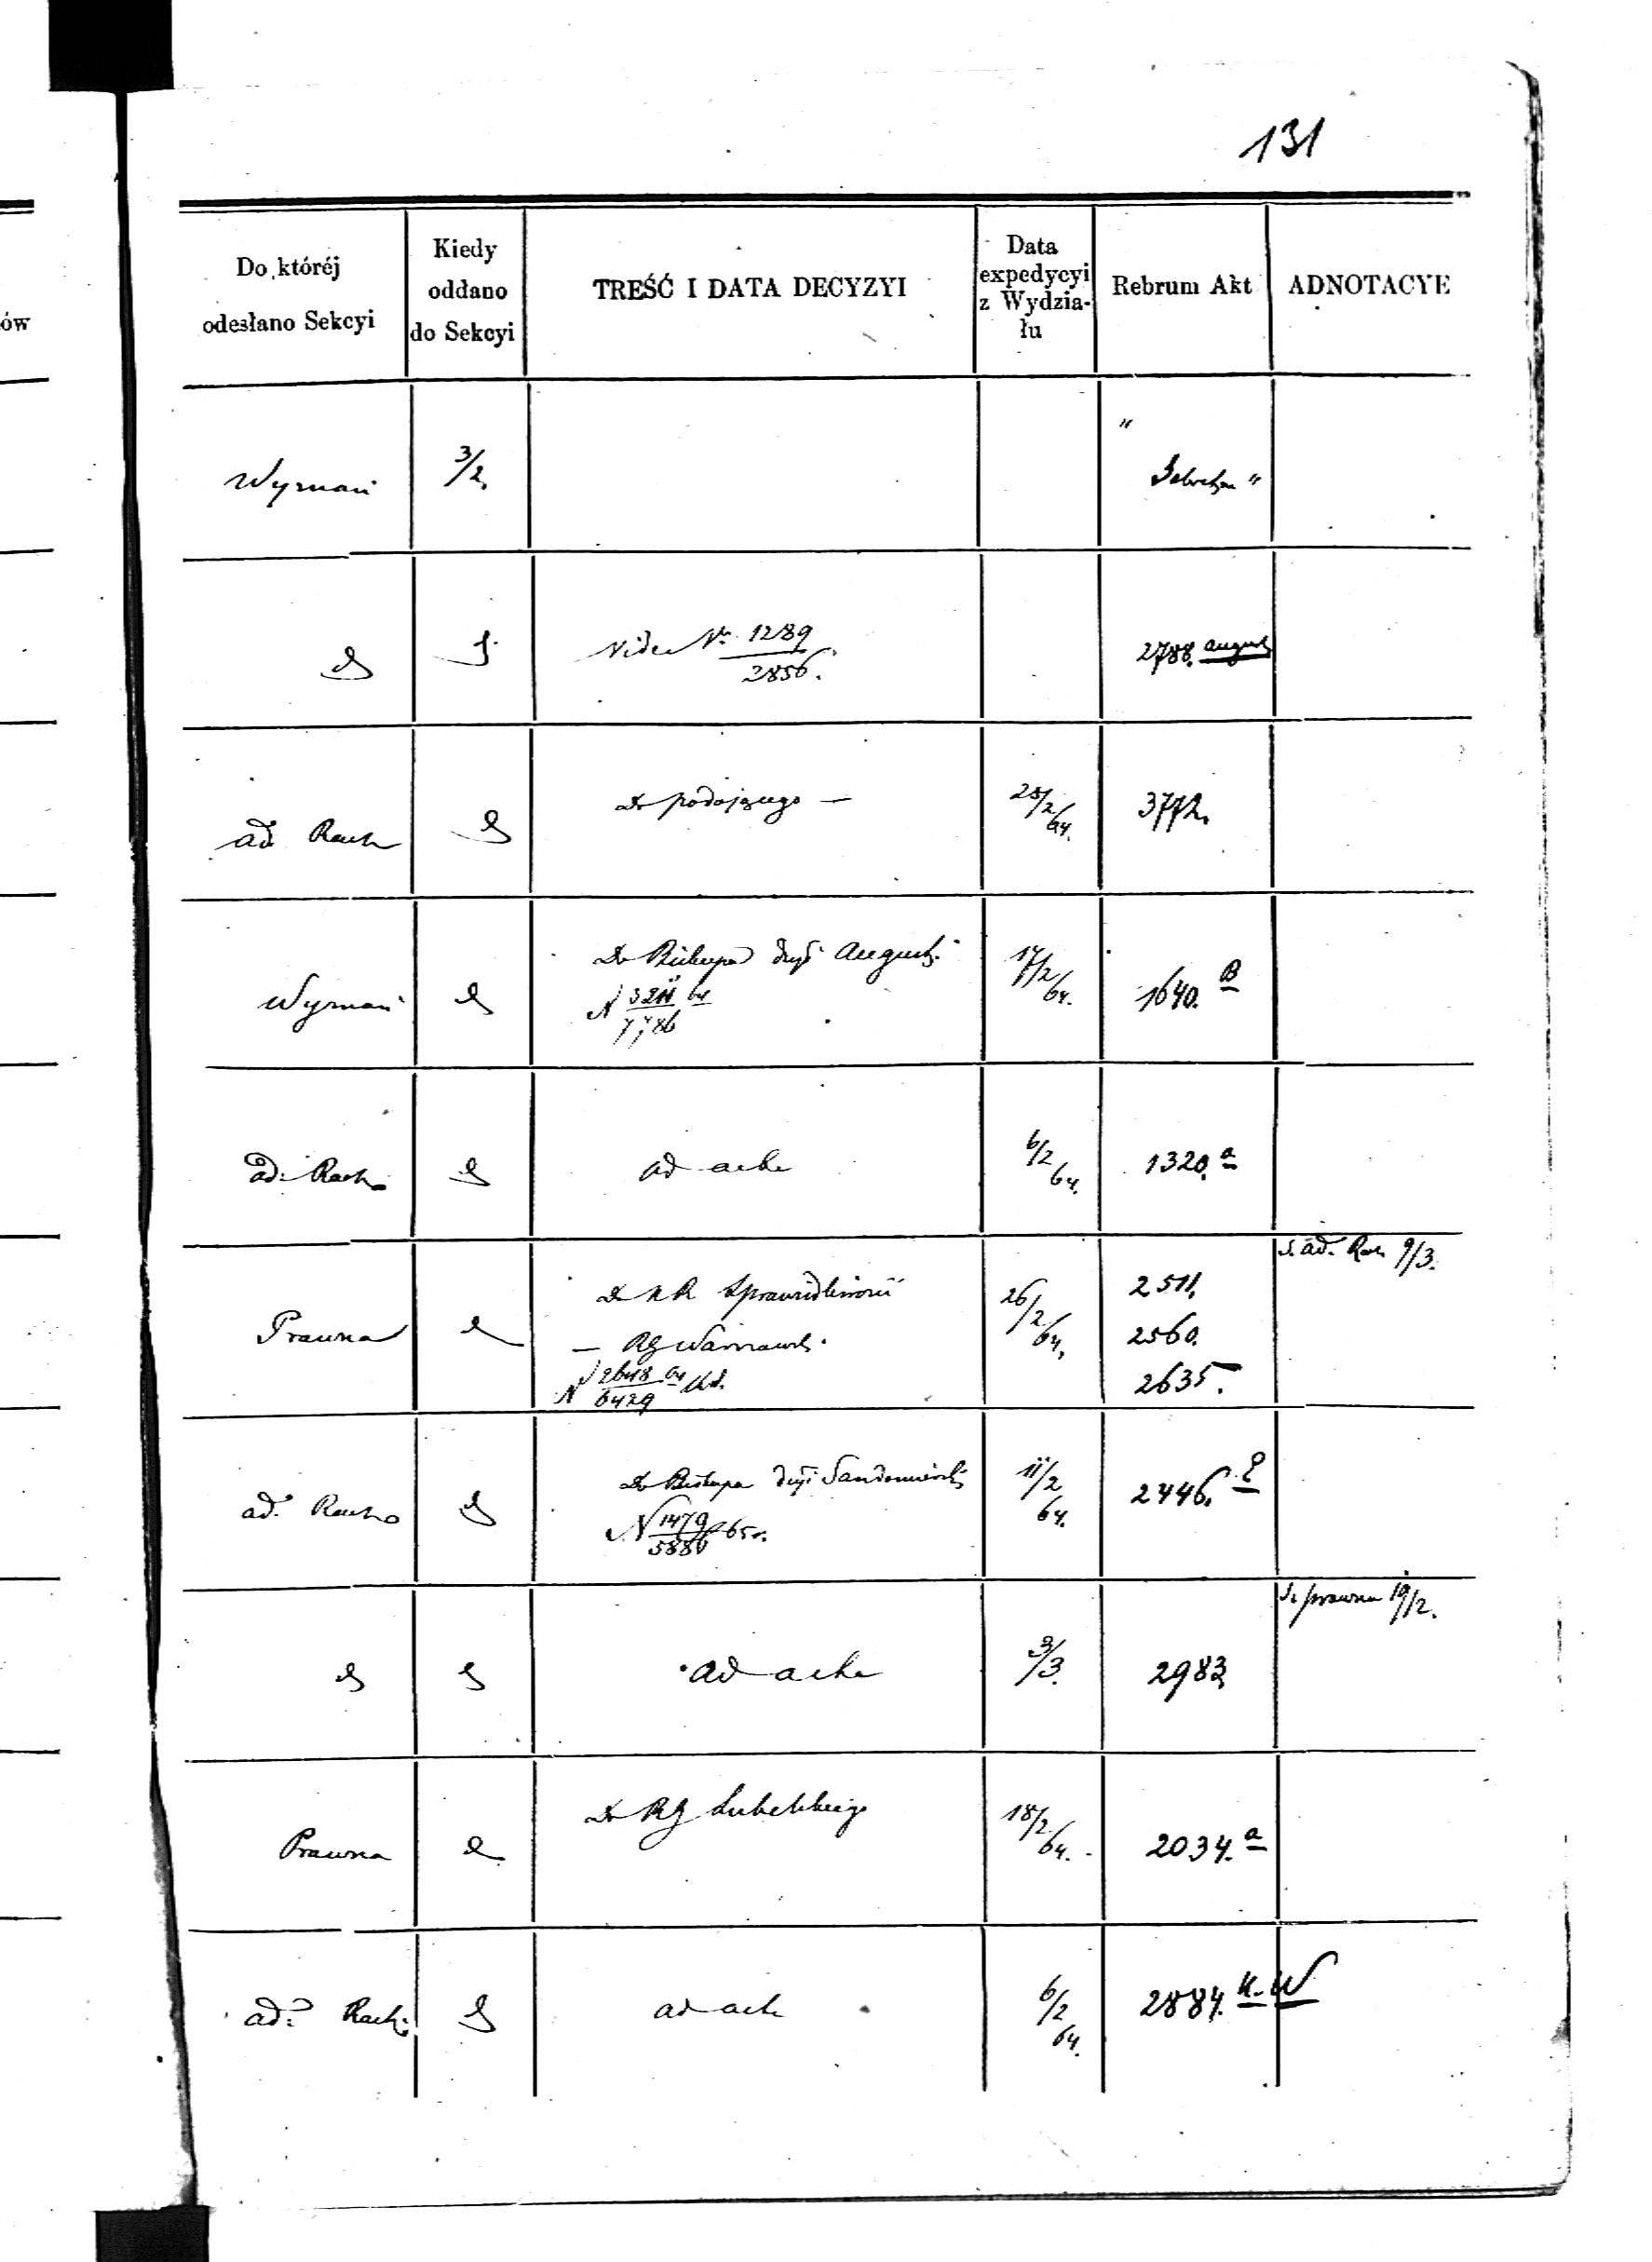 131
ów
Do któréj
odesłano Sekcyi
Kiedy
oddano
do Sekcyi
TREŚĆ I DATA DECYZYI
Data
expedycyi
z Wydzia-
łu
Rebrum Akt
ADNOTACYE
Wyznań
3/2.
"
"
Vide Nr 1289
2856.
2788. August
ad Rach
Do podającego —
25/2
64.
3772.
Wyznań
Do Biskupa Augusts.
N 3211 64
17/2
64.
1640. B
ad. Rach
ad acta
6/2
64.
1320. a
Prawna
Do KR Sprawiedliwości
— RG Warszaws.
N 2648 64
6429
26/2
64.
2511.
2560.
2635.
S. ad. Rach 9/3.
ad. Rach
Do Biskupa Sandomiersk.
N 1479 65r.
5886
11/2
64.
2446.
ad acta
3/3.
2983
S. prawna 19/2.
Prawna
Do RG Lubelskiego
18/2
64.
2034. a
ad. Rach.
ad acta
6/2
64.
2884. K. W